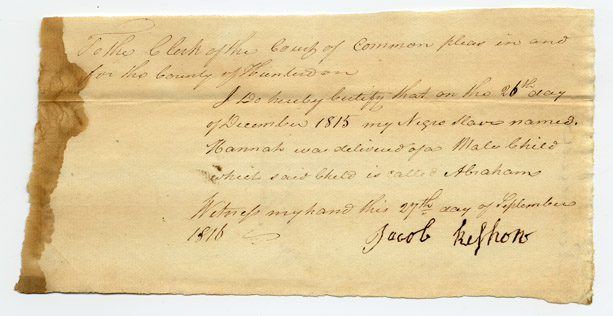 To the Clerk of the Court of Common pleas in and
for the County of Hunterdon
I Do hereby Certify that on the 26th day
of December 1815 my Negro Slave named
Hannah was delivered of a Male Child
which said Child is called Abraham
Witness my hand this 27th day of September
1816
Jacob